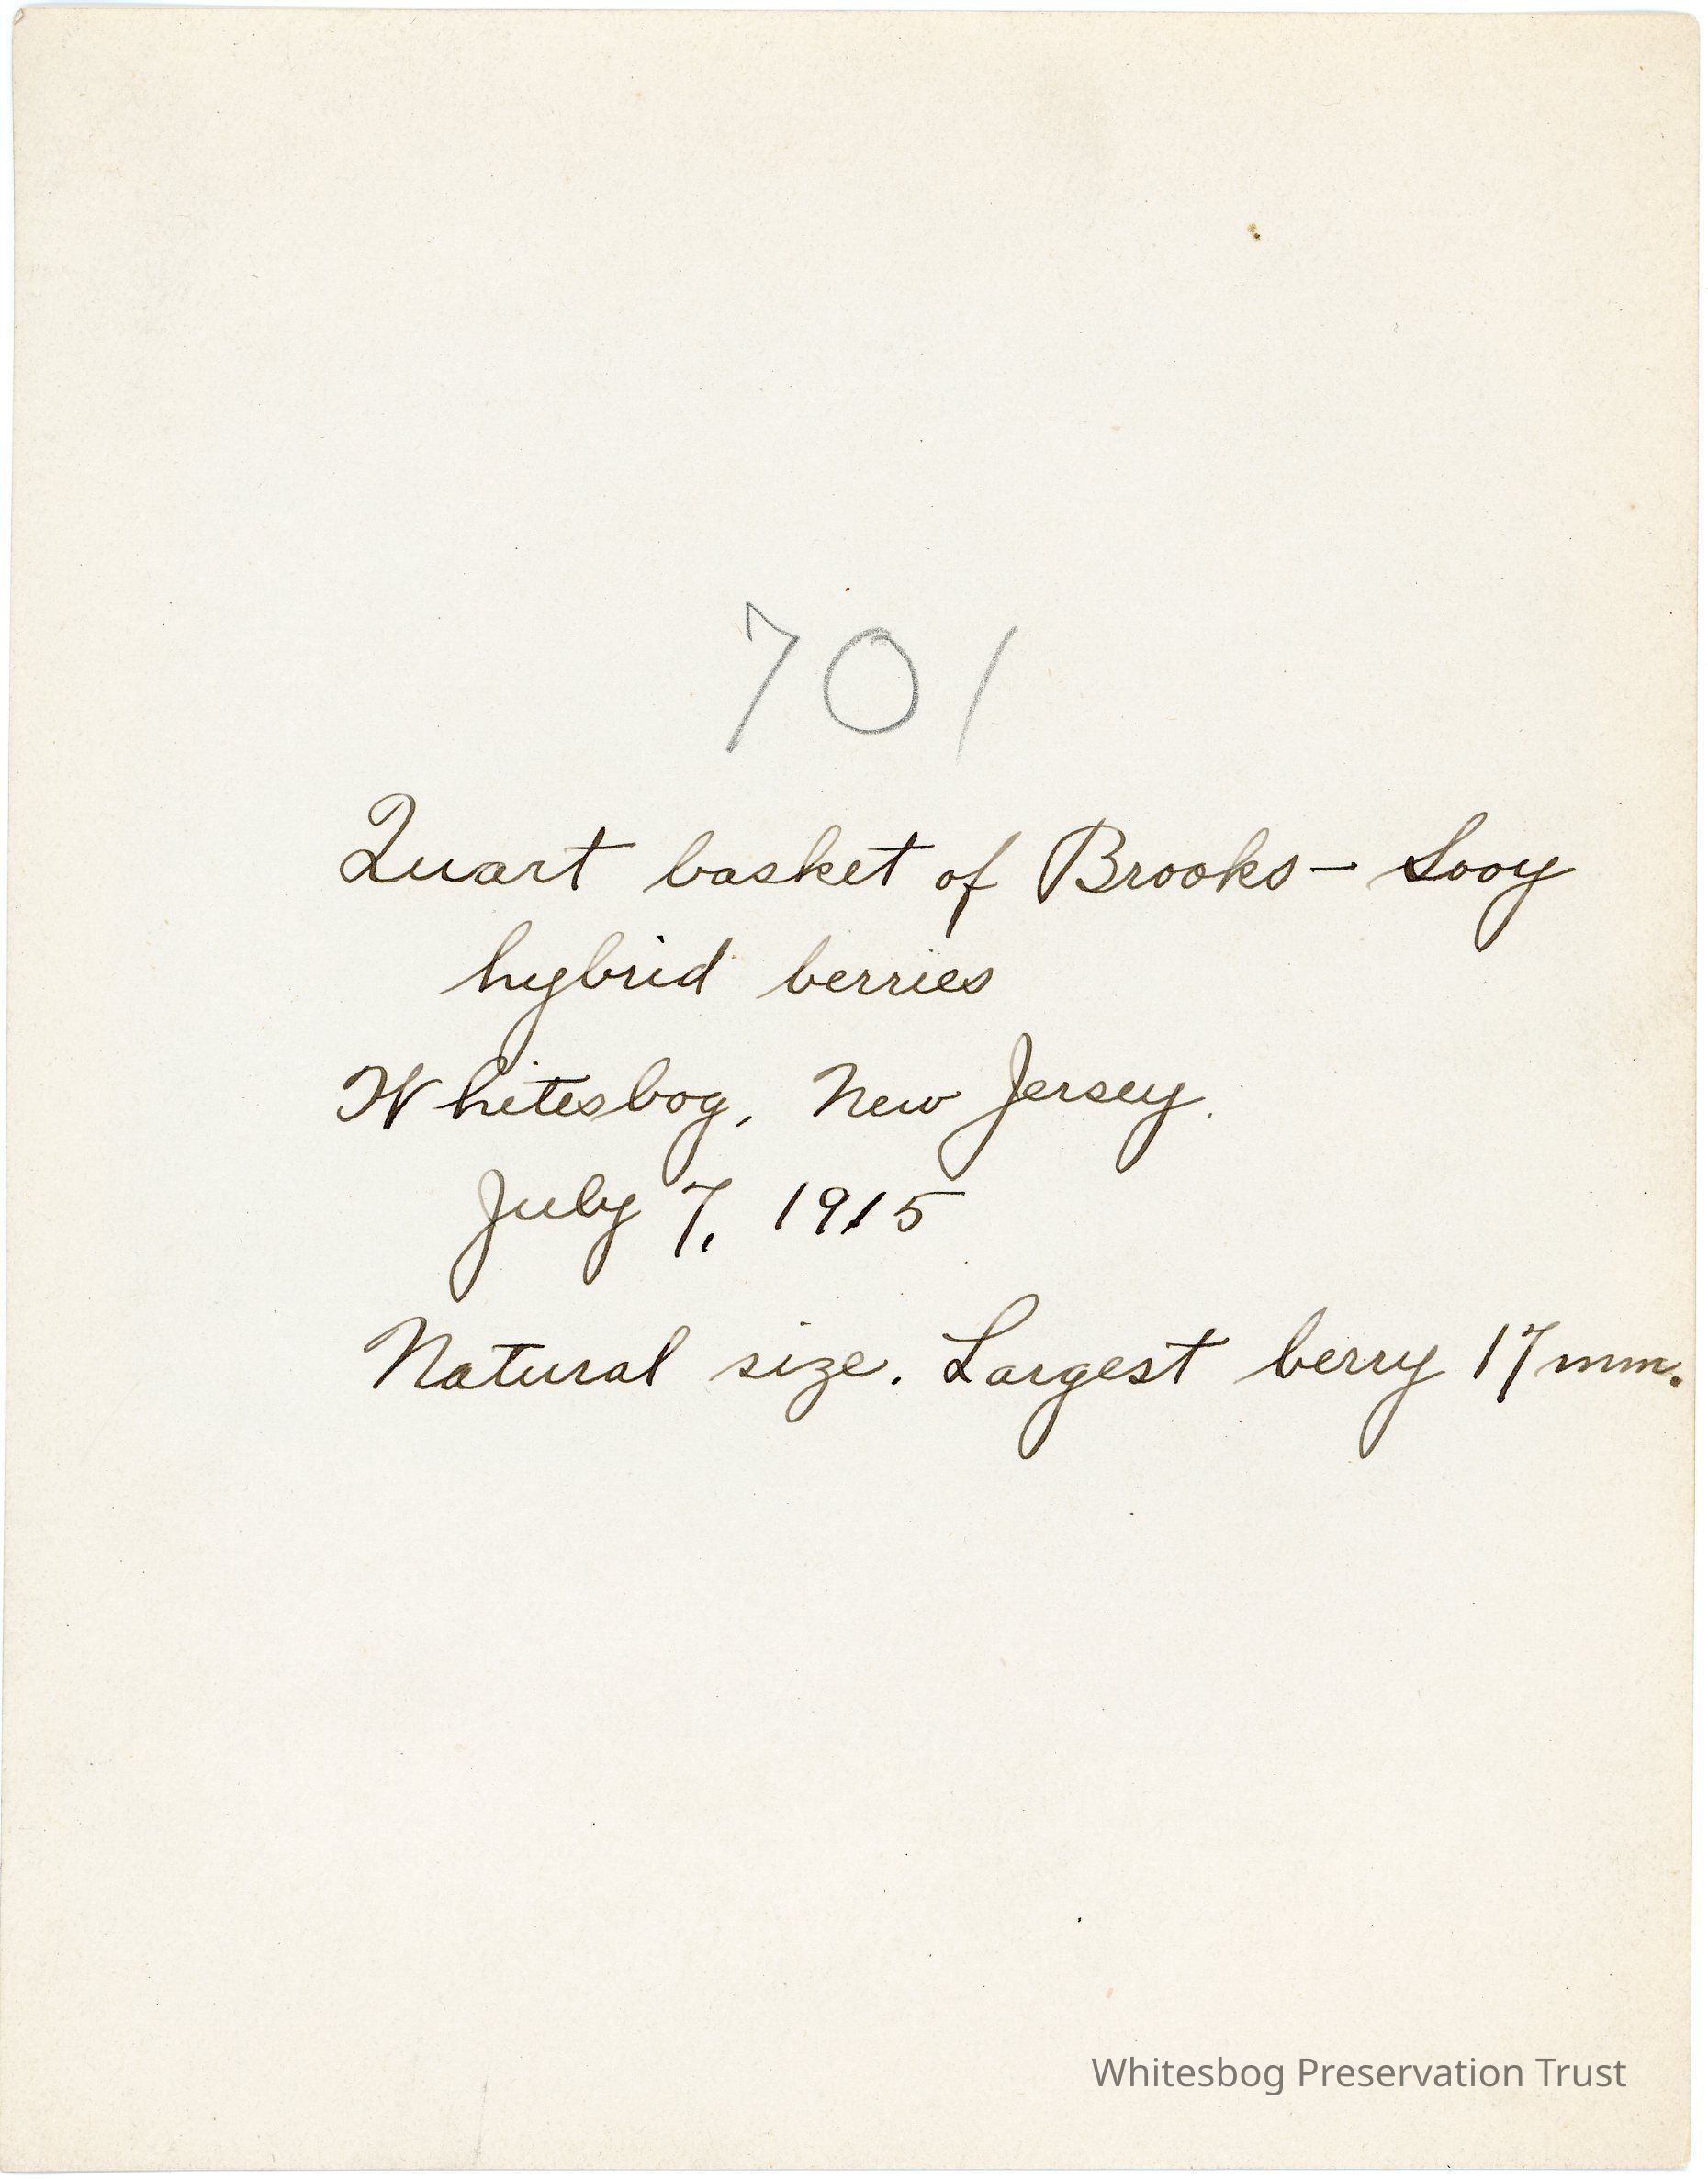 701
Quart basket of Brooks - Sooy
hybrid berries
Whitesbog, New Jersey.
July 7, 1915
Natural size. Largest berry 17 mm.
Whitesbog Preservation Trust